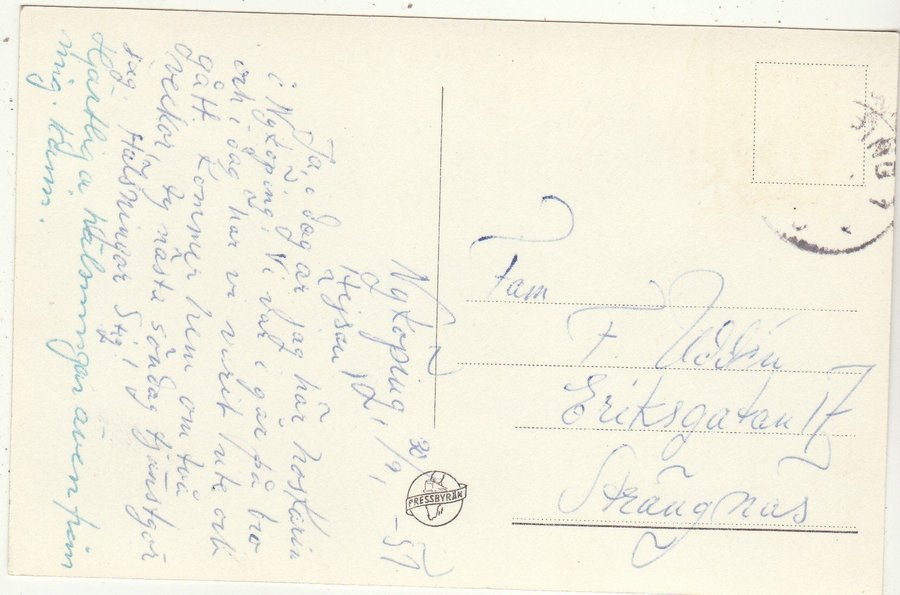 Nyköping, 1/9, -57
Hejsan,
Ja, i dag är jag här hos Karin
i Nyköping. Vi var i går på bio
och i dag har vi varit ute och
gått. Kommer hem om två
veckor, ty nästa söndag tjänstgör
jag. Hälsningar Stig
Hjärtliga hälsningar även från
mig. Karin.
PRESSBYRÅN
Fam
F. Uddén
Eriksgatan 17
Strängnäs